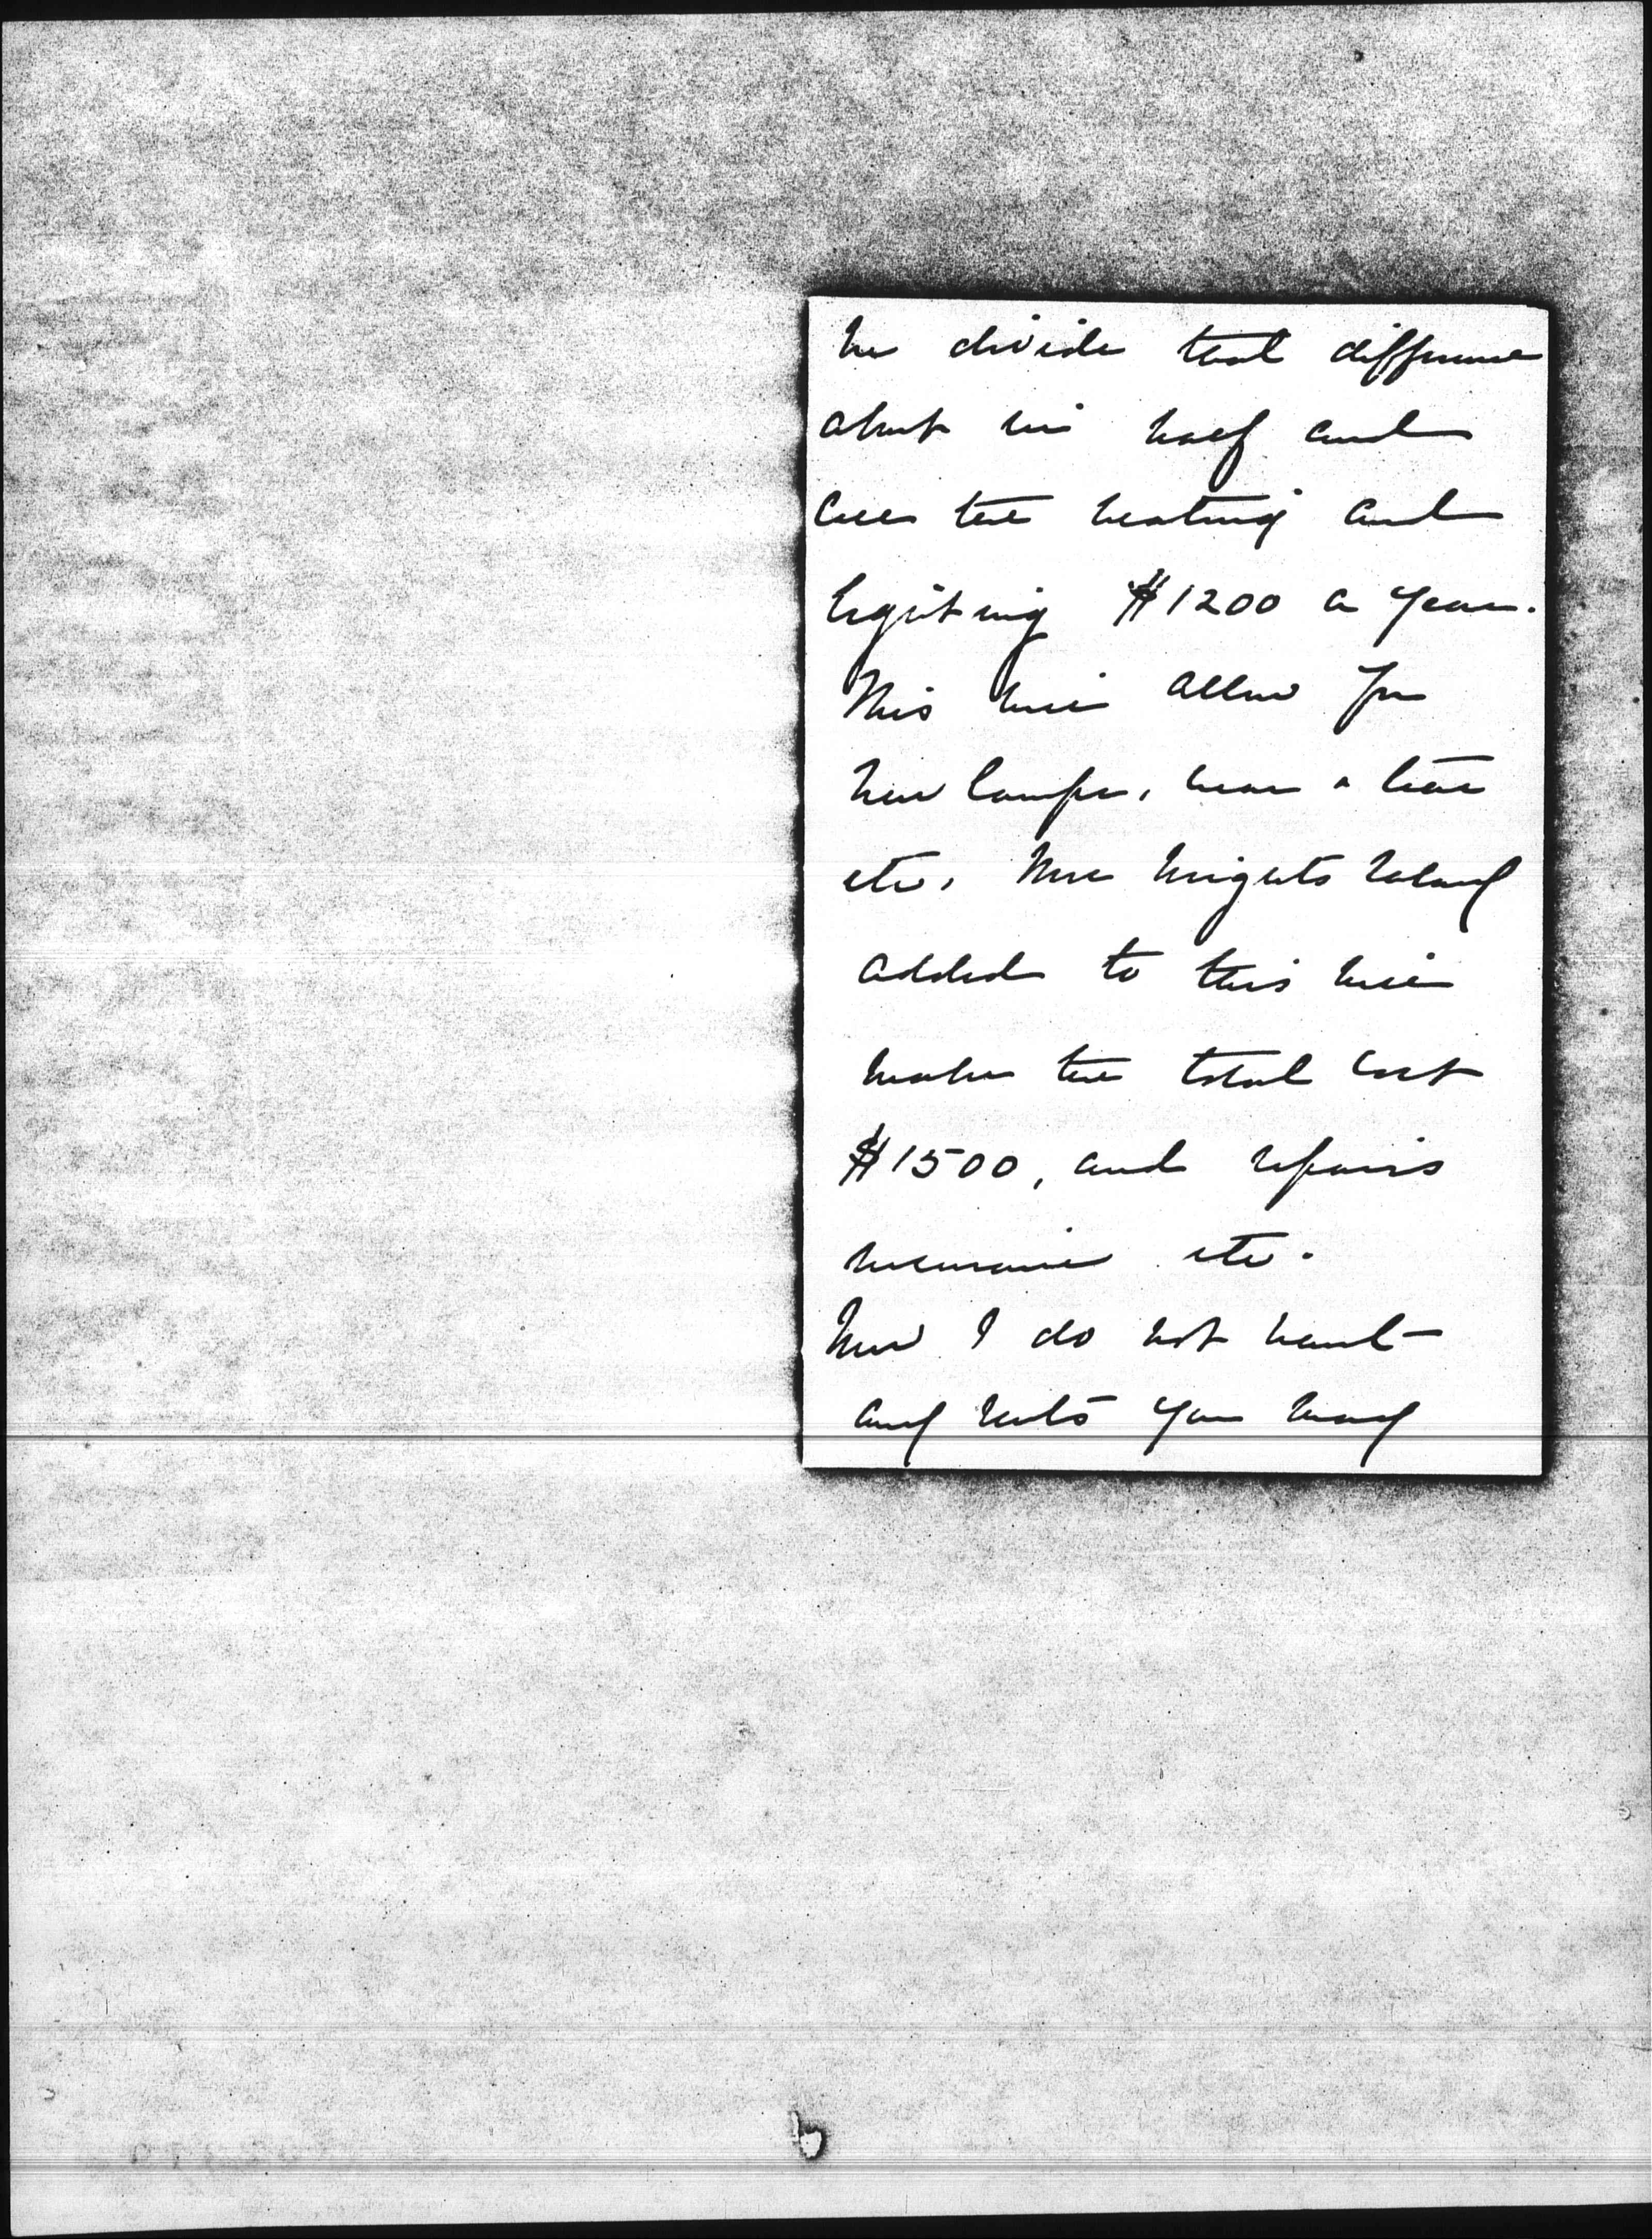 we divide that difference
about in half and
call the heating and
lighting $1200 a year.
This will allow for
new lamps, wear & tear
etc. Mr Wrights salary
added to this will
make the total cost
$1500, and repairs
insurance etc.
Now I do not want
any rents you may